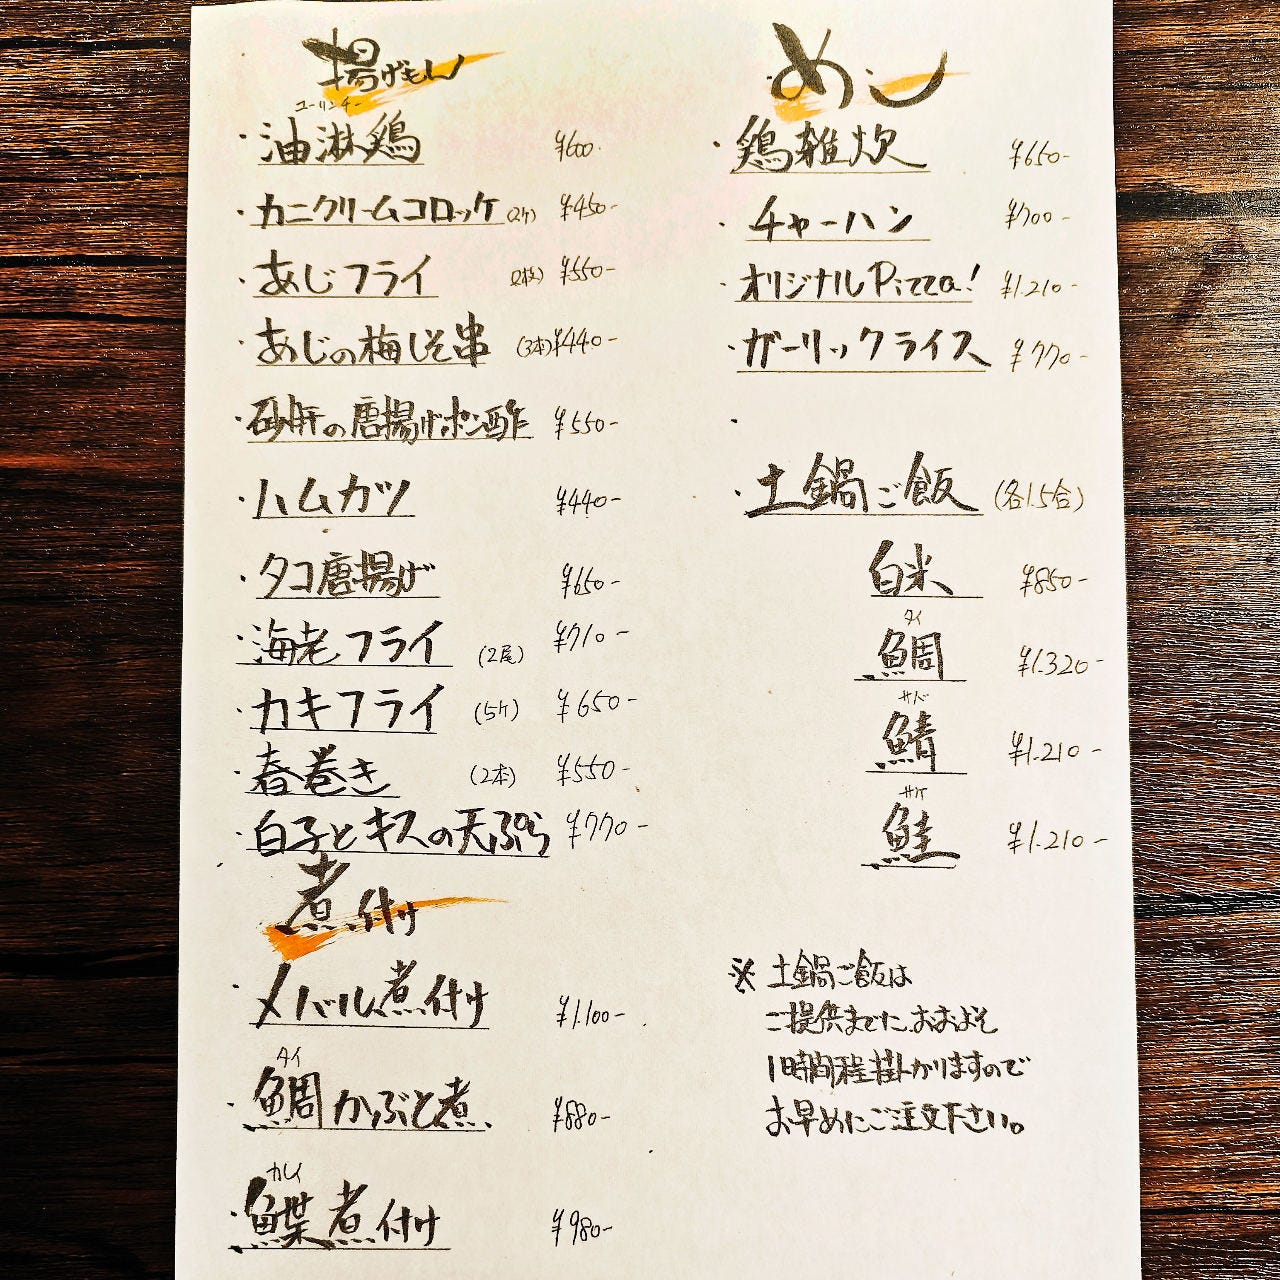 揚げもん
ユーリンチー
・油淋鶏 ¥600-
・カニクリームコロッケ(2ケ) ¥450-
・あじフライ (2枚) ¥550-
・あじの梅しそ串 (3本) ¥440-
・砂肝の唐揚げポン酢 ¥550-
・ハムカツ ¥440-
・タコ唐揚げ ¥650-
・海老フライ (2尾) ¥710-
・カキフライ (5ケ) ¥650-
・春巻き (2本) ¥550-
・白子とキスの天ぷら ¥770-
煮付け
・メバル煮付け ¥1.100-
タイ
・鯛かぶと煮 ¥880-
カレイ
・鰈煮付け ¥980-
めし
・鶏雑炊 ¥650-
・チャーハン ¥700-
・オリジナルPizza! ¥1.210-
・ガーリックライス ¥770-
・
・土鍋ご飯 (各1.5合)
白米 ¥850-
タイ
鯛 ¥1.320-
サバ
鯖 ¥1.210-
サケ
鮭 ¥1.210-
※土鍋ご飯は
ご提供までにおおよそ
1時間程掛かりますので
お早めにご注文下さい。